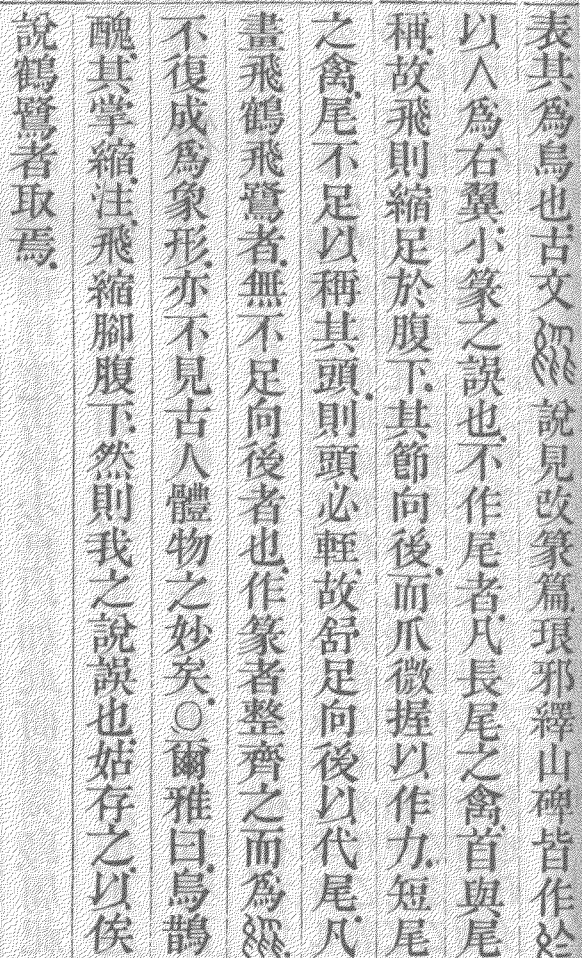 表其爲烏也古文說見改篆篇琅邪繹山碑皆作
以人爲右翼小篆之誤也不作尾者凡長尾之禽首與尾
稱故飛則縮足於腹下其節向後而爪微握以作力短尾
之禽尾不足以稱其頭則頭必輊故舒足向後以代尾凡
畫飛鶴飛鷺者無不足向後者也作篆者整齊之而爲
不復成爲象形亦不見古人體物之妙矣○爾雅曰烏鵲
醜其掌縮注飛縮腳腹下然則我之說誤也姑存之以俟
說鶴鷺者取焉